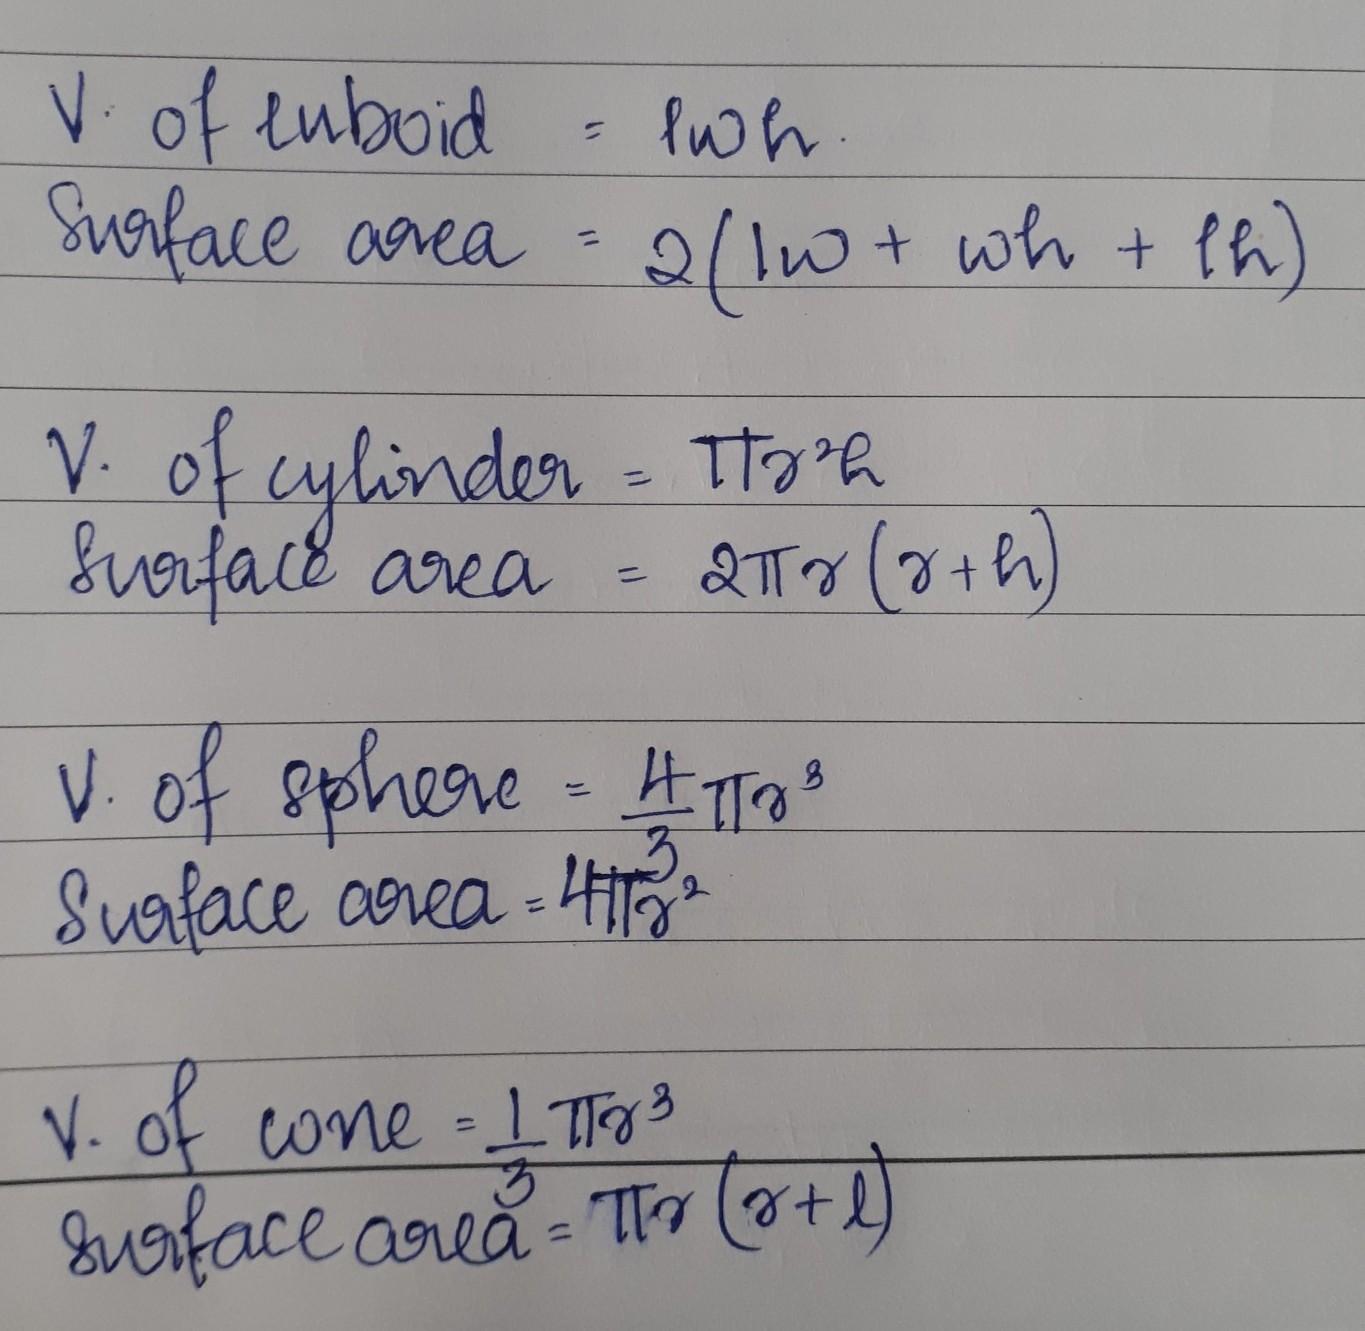 V. of cuboid = lwh.
Surface area = 2(lw + wh + lh)
V. of cylinder = πr²h
Surface area = 2πr(r+h)
V. of sphere = 4/3 πr³
Surface area = 4πr²
V. of cone = 1/3 πr³
Surface area = πr(r+l)